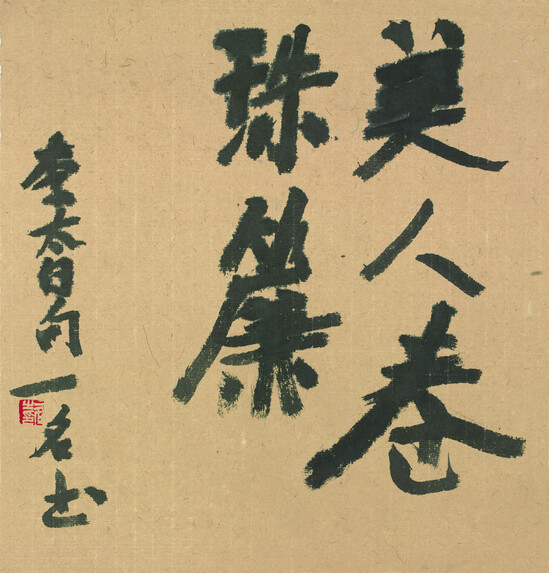 美人卷
珠簾
李太白句
一名书